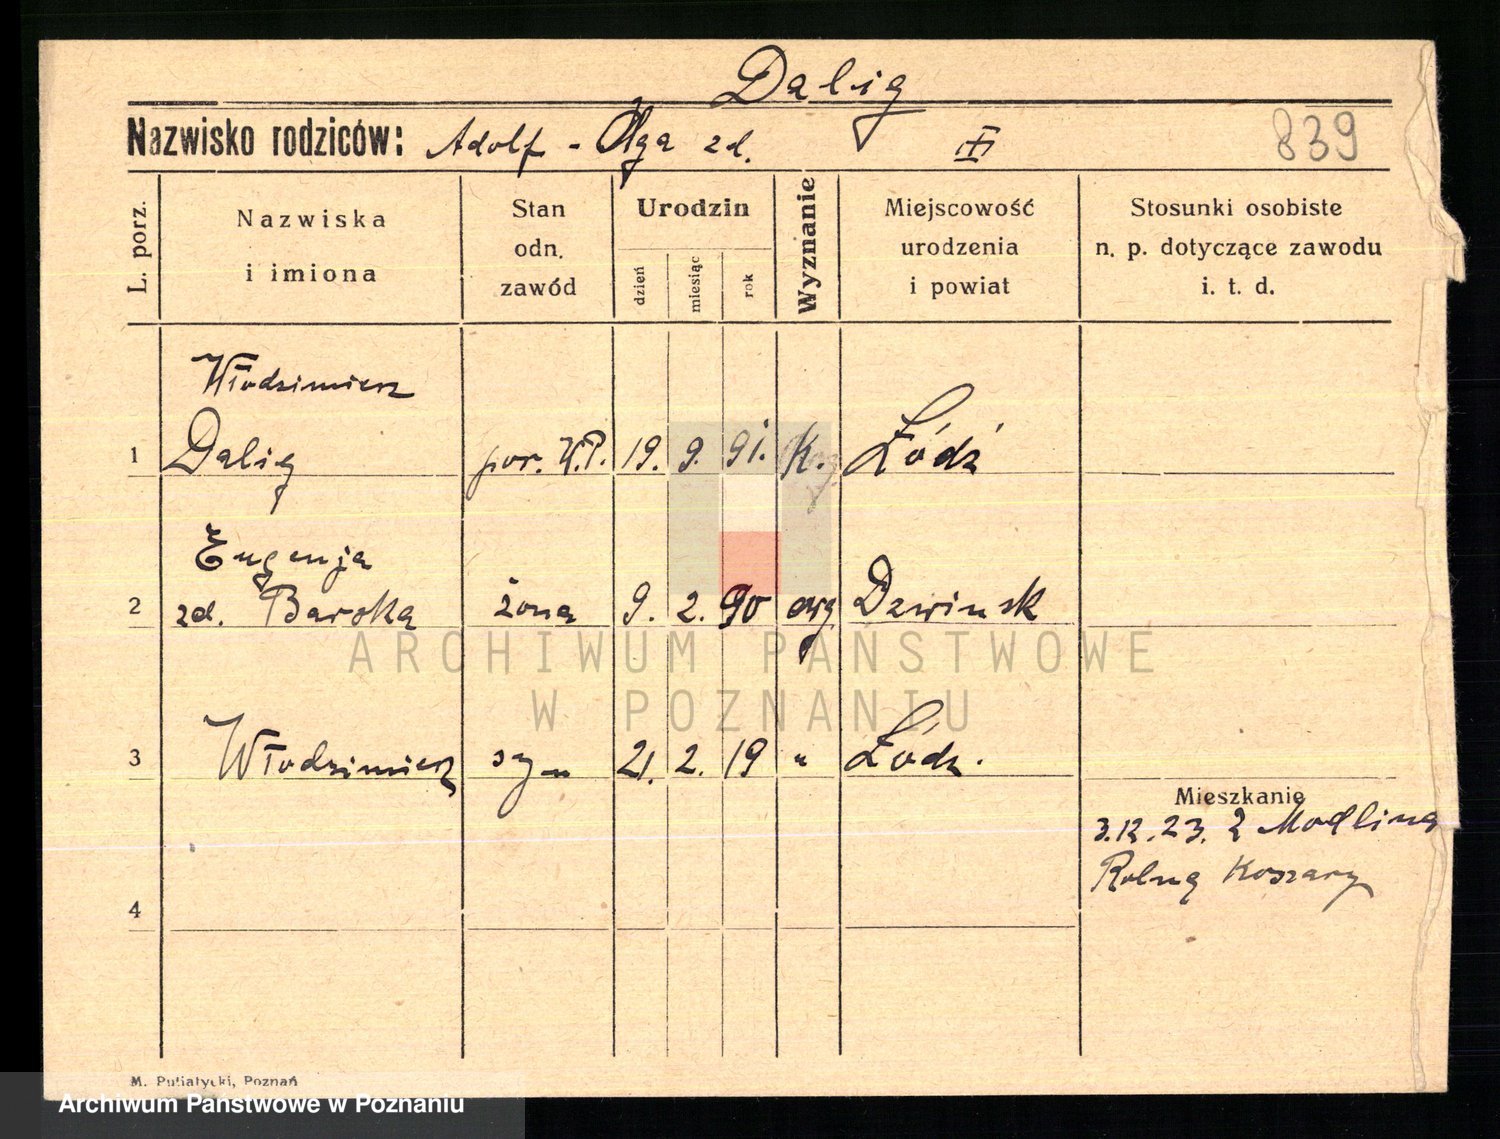 Dalig
Nazwisko rodziców: Adolf - Olga zd.
III
839
L. porz.
Nazwiska
i imiona
Stan
odn.
zawód
Urodzin
dzień
miesiąc
rok
Wyznanie
Miejscowość
urodzenia
i powiat
Stosunki osobiste
n. p. dotyczące zawodu
i. t. d.
Włodzimierz
1 Dalig por. W.P. 19. 9. 91. K. Łódź
Eugenja
2 zd. Barska żona 9. 2. 90 Dzwinsk
3 Włodzimierz syn 21. 2. 19 " Łódz.
Mieszkanie
3.12.23. z Modlina
Rolna Koszary
4
ARCHIWUM PAŃSTWOWE
W POZNANIU
M. Putiatycki, Poznań
Archiwum Państwowe w Poznaniu